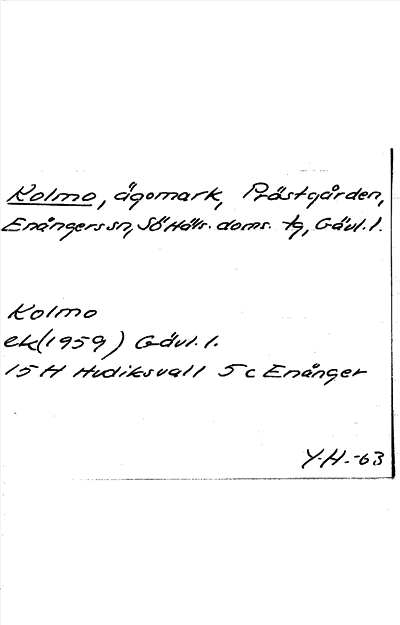 Kolmo, ägomark, Prästgården,
Enångers sn, Sö Häls. doms. tg, Gävl. l.
Kolmo
ek (1959) Gävl. l.
15 H Hudiksvall 5 c Enånger
Y.H.-63